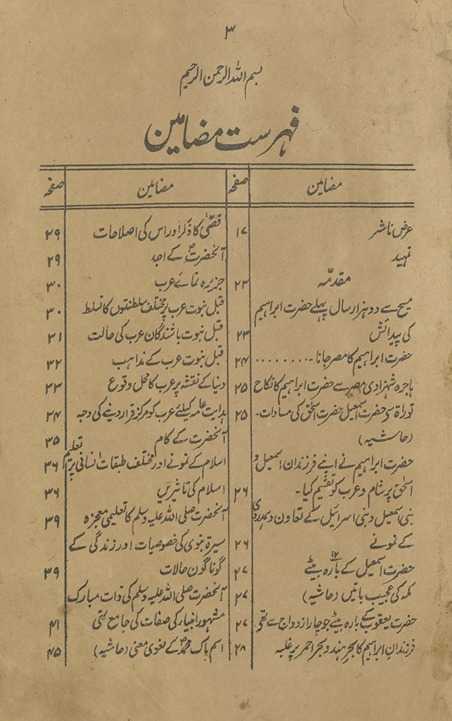 ۳
بسم اللہ الرحمن الرحیم
فہرست مضامین
مضامین صفحہ
عرض ناشر ۱۷
تمہید
مقدمّہ ۲۲
مسیح سے دو ہزار سال پہلے حضرت ابراہیم
کی پیدائش ۲۳
حضرت ابراہیم کا مصر جانا ۔ ۔ ۔ ۔ ۔ ۔ ۔ ۔ ۲۴
ہاجرہ شہزادی مصر سے حضرت ابراہیم کا نکاح ۲۵
توراۃ سے حضرت اسمٰعیل حضرت اسحٰق کی مساوات۔ ۲۵
(حاشیہ)
حضرت ابراہیم نے اپنے فرزندان اسمٰعیل و
اسحٰق پر شام و عرب کو تقسیم کیا۔ ۲۶
بنی اسمٰعیل و بنی اسرائیل کے تعاون و ہمدردی
کے نمونے ۲۶
حضرت اسمٰعیل کے بارہ ۱۲ بیٹے ۲۷
مکہ کی عجیب باتیں (حاشیہ) ۲۷
حضرت یعقوب کے بارہ بیٹے جو چار ازدواج سے تھے ۲۷
فرزندان ابراہیم کا بحر ہند و بحر احمر پر غلبہ ۲۸
مضامین صفحہ
قصّی کا ذکر اور اس کی اصلاحات ۲۹
آنحضرت کے اجد ۲۹
جزیرہ نمائے عرب ۳۰
قبل نبوت عرب پر مختلف سلطنتوں کا تسلط ۳۰
قبل نبوت باشندگان عرب کی حالت ۳۱
قبل نبوت عرب کے مذاہب ۳۲
دنیا کے نقشہ پر عرب کا محل وقوع ۳۳
ہدایت عامہ کیلئے عرب کو مرکز قرار دینے کی وجہ ۳۴
آنحضرت کے کام ۳۵
اسلام کے نمونے اور مختلف طبقات انسانی پر تعلیم ۳۶
اسلام کی تاثیریں ۳۶
آنحضرت صلی اللہ علیہ وسلم کا تعلیمی معجزہ ۳۹
سیرۃ نبوی کی خصوصیات اور زندگی کے
گوناگون حالات ۳۹
آنحضرت صلی اللہ علیہ وسلم کی ذات مبارک
مشہور انبیاء کی صفات کی جامع تھی ۴۱
اسم پاک محمدؐ کے لغوی معنی (حاشیہ) ۴۵